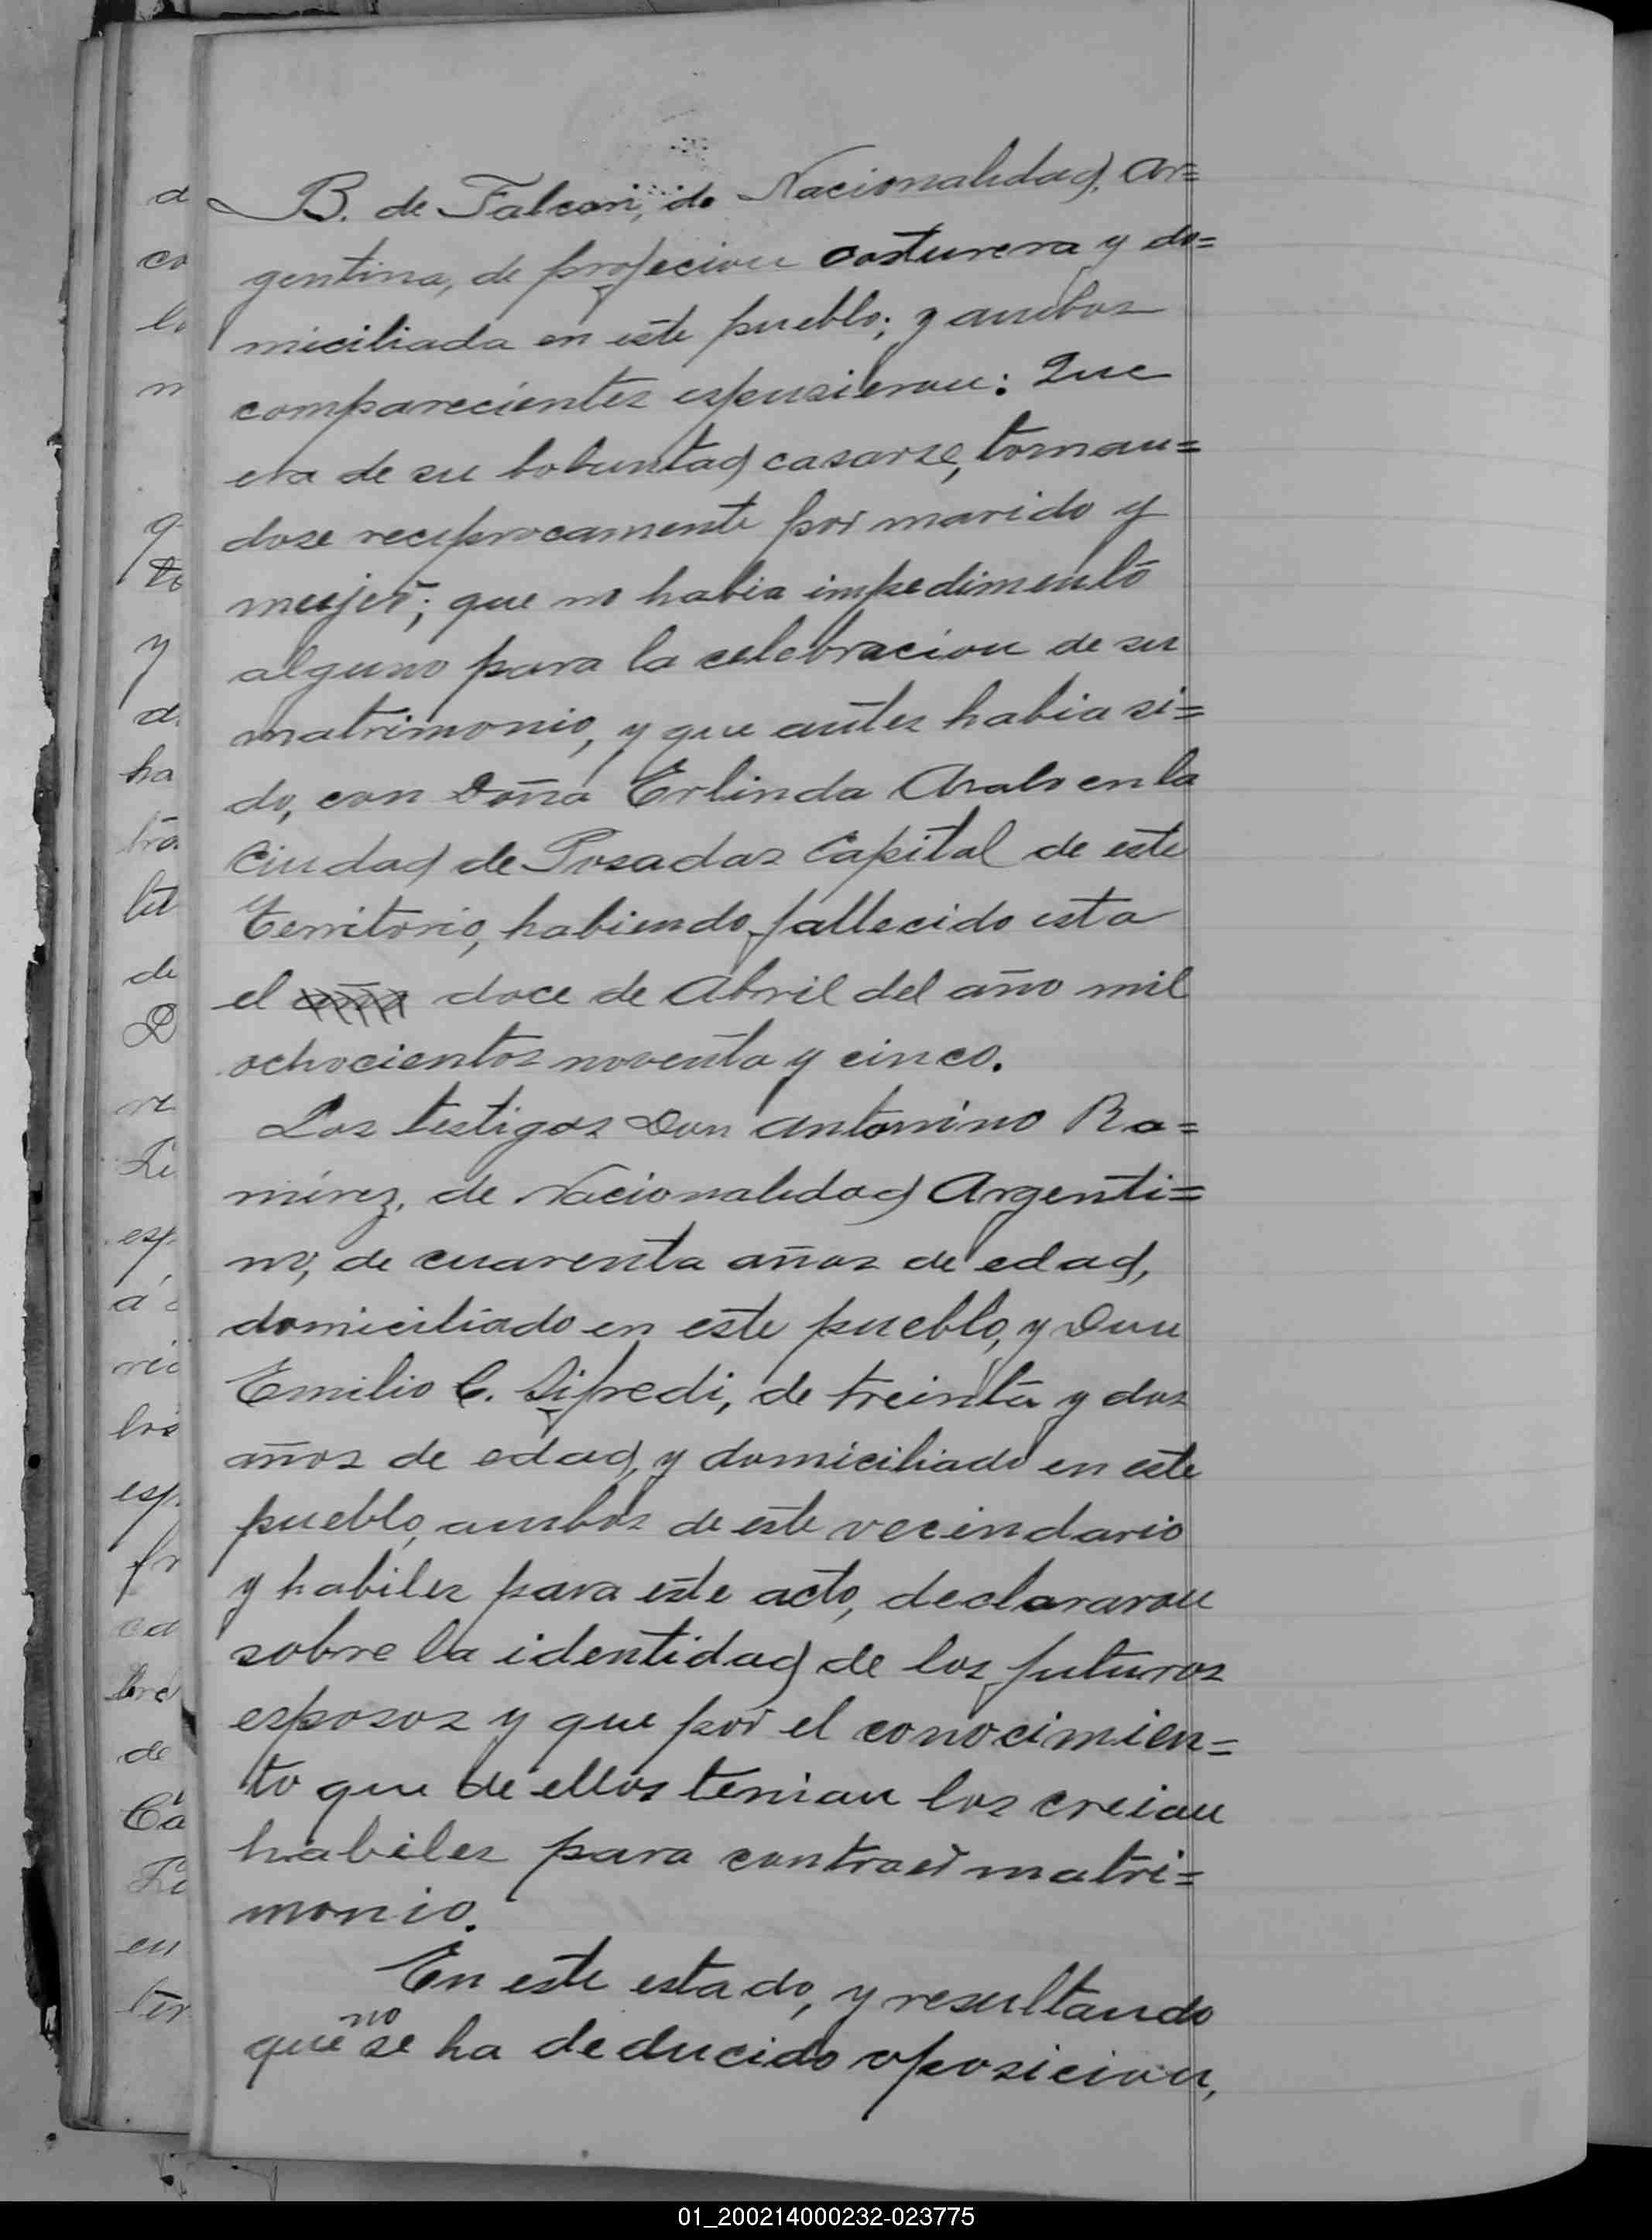 B. de Falcon, de Nacionalidad, Ar=
gentina, de profecion costurera y do=
miciliada en este pueblo; y ambos
comparecientes espusieron: Que
era de su boluntad casarse, toman=
dose reciprocamente por marido y
mujer; que no habia impedimento
alguno para la celebracion de su
matrimonio, y que antes habia si=
do, con Doña Erlinda en la
Ciudad de Posadas Capital de este
Territorio, habiendo fallecido esta
el año doce de Abril del año mil
ochocientos noventa y cinco.
Los testigos Don Antonino Ra=
mirez, de Nacionalidad Argenti=
no, de cuarenta años de edad,
domiciliado en este pueblo, y Don
Emilio C. Sifredi, de treinta y dos
años de edad, y domiciliado en este
pueblo, ambos de este vecindario
y habiles para este acto, declararon
sobre la identidad de los futuros
esposos y que por el conocimien=
to que de ellos tenian los creian
habiles para contraer matri=
monio.
En este estado, y resultando
que no se ha deducido oposicion,
01_200214000232-023775